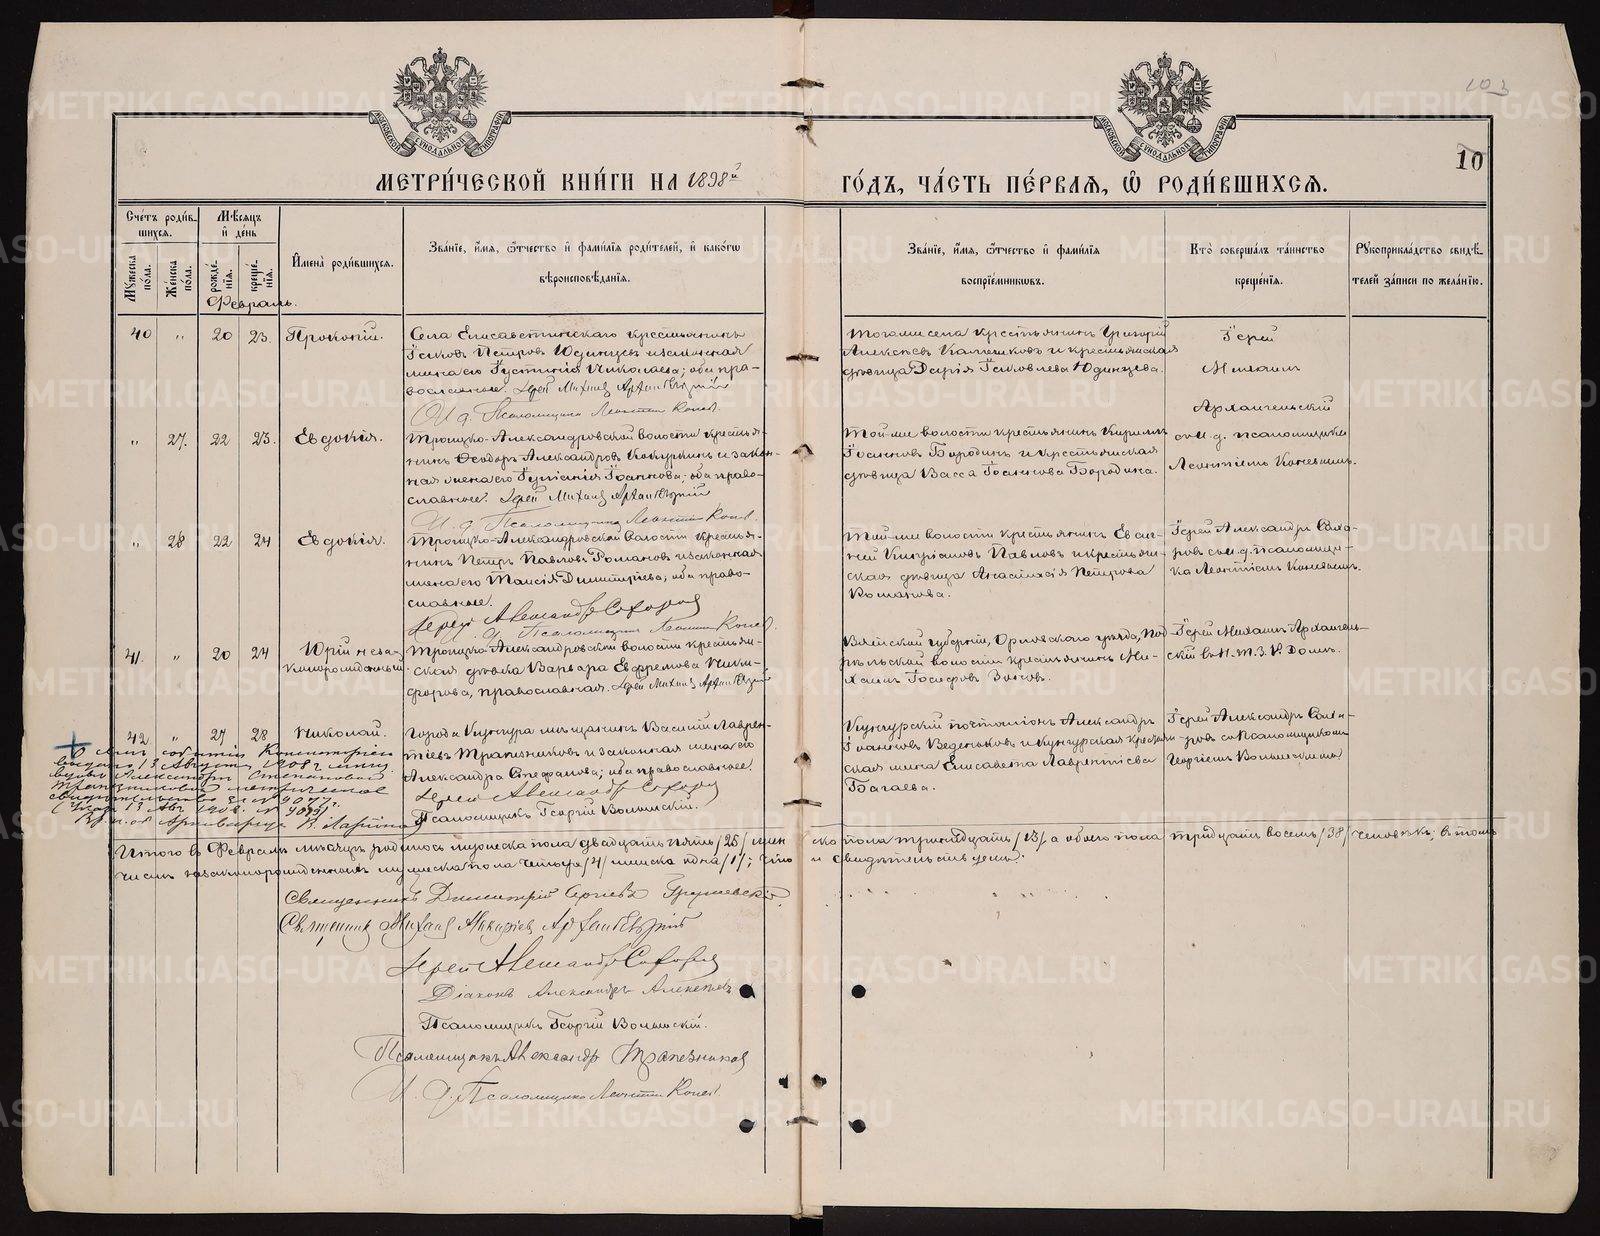 103
10
МЕТРИ́ЧЕСКОЙ КНИ́ГИ НА 1898й
ГО́ДЪ, ЧА́СТЬ ПЕ́РВАѦ, Ѡ҆ РОДИ́ВШИХСѦ.
Сче́тъ роди́в-
шихся.
Мѣ́сяцъ
и҆ де́нь
Му́жеска по́ла.
Же́нска по́ла.
рожде́нїѧ.
креще́нїѧ.
И҆мена̀ роди́вшихсѧ.
Зва́нїе, и҆́мѧ, ѻ҆́тчество и҆ фами́лїѧ роди́телей, и҆ како́гѡ
вѣроисповѣ́данїѧ.
Зва́нїе, и҆́мѧ, ѻ҆́тчество и҆ фами́лїѧ
воспрїе́мникѡвъ.
Кто̀ соверша́лъ та́инство
креще́нїѧ.
Рꙋкоприкла́дство свидѣ́-
телей за́писи по жела́нїю.
Февраль.
40 " 20 23. Прокопій.
Села Елисаветинскаго крестьянинъ
Іаковъ Петровъ Юдинцевъ и законная
жена его Іустинія Николаева; оба пра-
вославные. Іерей Михаил Архангельский
И. д. Псаломщика Леонтий Конев.
Тогоже села крестьянинъ Григорій
Алексѣевъ и крестьянская
дѣвица Дарія Іаковлева Юдинцева.
Іерей
Михаилъ
Архангельскій
" 27. 22 23. Евдокія.
Троицко-Александровской волости крестья-
нинъ Ѳеодоръ Александровъ и закон-
ная жена его Іоаннова; оба право-
славные. Іерей Михаил Архангельский
И. д. Псаломщика Леонтий Конев.
Той-же волости крестьянинъ Кириллъ
Іоанновъ Бородинъ и крестьянская
дѣвица Васса Іоаннова Бородина.
съ И. д. псаломщика
Леонтіемъ Коневымъ.
" 28 22 24 Евдокія.
Троицко-Александровской волости крестья-
нинъ Петръ Павловъ Романовъ и законная
жена его Таисія Димитріева; оба право-
славные.
Іерей Александр Сахаров
И. д. Псаломщика Леонтий Конев.
Той-же волости крестьянинъ Евге-
ній Павловъ и крестьян-
ская дѣвица Анастасія Петрова
Романова.
Іерей Александръ Саха-
ровъ съ И. д. псаломщи-
ка Леонтіемъ Коневымъ.
41. " 20 24 Юрій неза-
коннорожденный
Троицко-Александровской волости крестьян-
ская дѣвка Варвара Ефремова Ники-
форова, православная. Іерей Михаил Архангельский
Вятской губерніи, Орловскаго уѣзда, Под-
рѣльской волости крестьянинъ Ми-
хаилъ Іосифовъ Зоновъ.
Іерей Михаилъ Архангель-
скій
42. " 27 28 Николай.
Города Кунгура мѣщанинъ Василій Лаврен-
тіевъ Трапезниковъ и законная жена его
Александра Стефанова; оба православные.
Іерей Александр Сахаров
Псаломщикъ Георгій Волынскій.
Кунгурскій почталіонъ Александръ
Іоанновъ и кунгурская крестьян-
ская жена Елисавета Лаврентіева
Багаева.
Іерей Александръ Саха-
ровъ съ Псаломщикомъ
Георгіемъ Волынскимъ
О семъ событіи Консисторіею
выдано 13 Августа 1908 г.
вдовѣ Александрѣ Степановой
Трапезниковой метрическое
свидѣтельство за № 9077.
Итого въ Февралѣ мѣсяцѣ родилось мужеска пола двадцать пять /25/ жен-
ска пола тринадцать /13/, а обоего пола тридцать восемь /38/ человѣкъ; въ томъ
числѣ незаконорожденныхъ мужеска пола четыре /4/ женска одна /1/; что
и свидѣтельствуемъ.
Священникъ Димитрій Сергіевъ
Священник Михаил Архангельский
Іерей Александр Сахаров
Діаконъ Александръ Алексѣевъ
Псаломщикъ Георгій Волынскій.
Псаломщикъ Александр Трапезников
И. д. Псаломщика Леонтий Конев.
METRIKI.GASO-URAL.RU